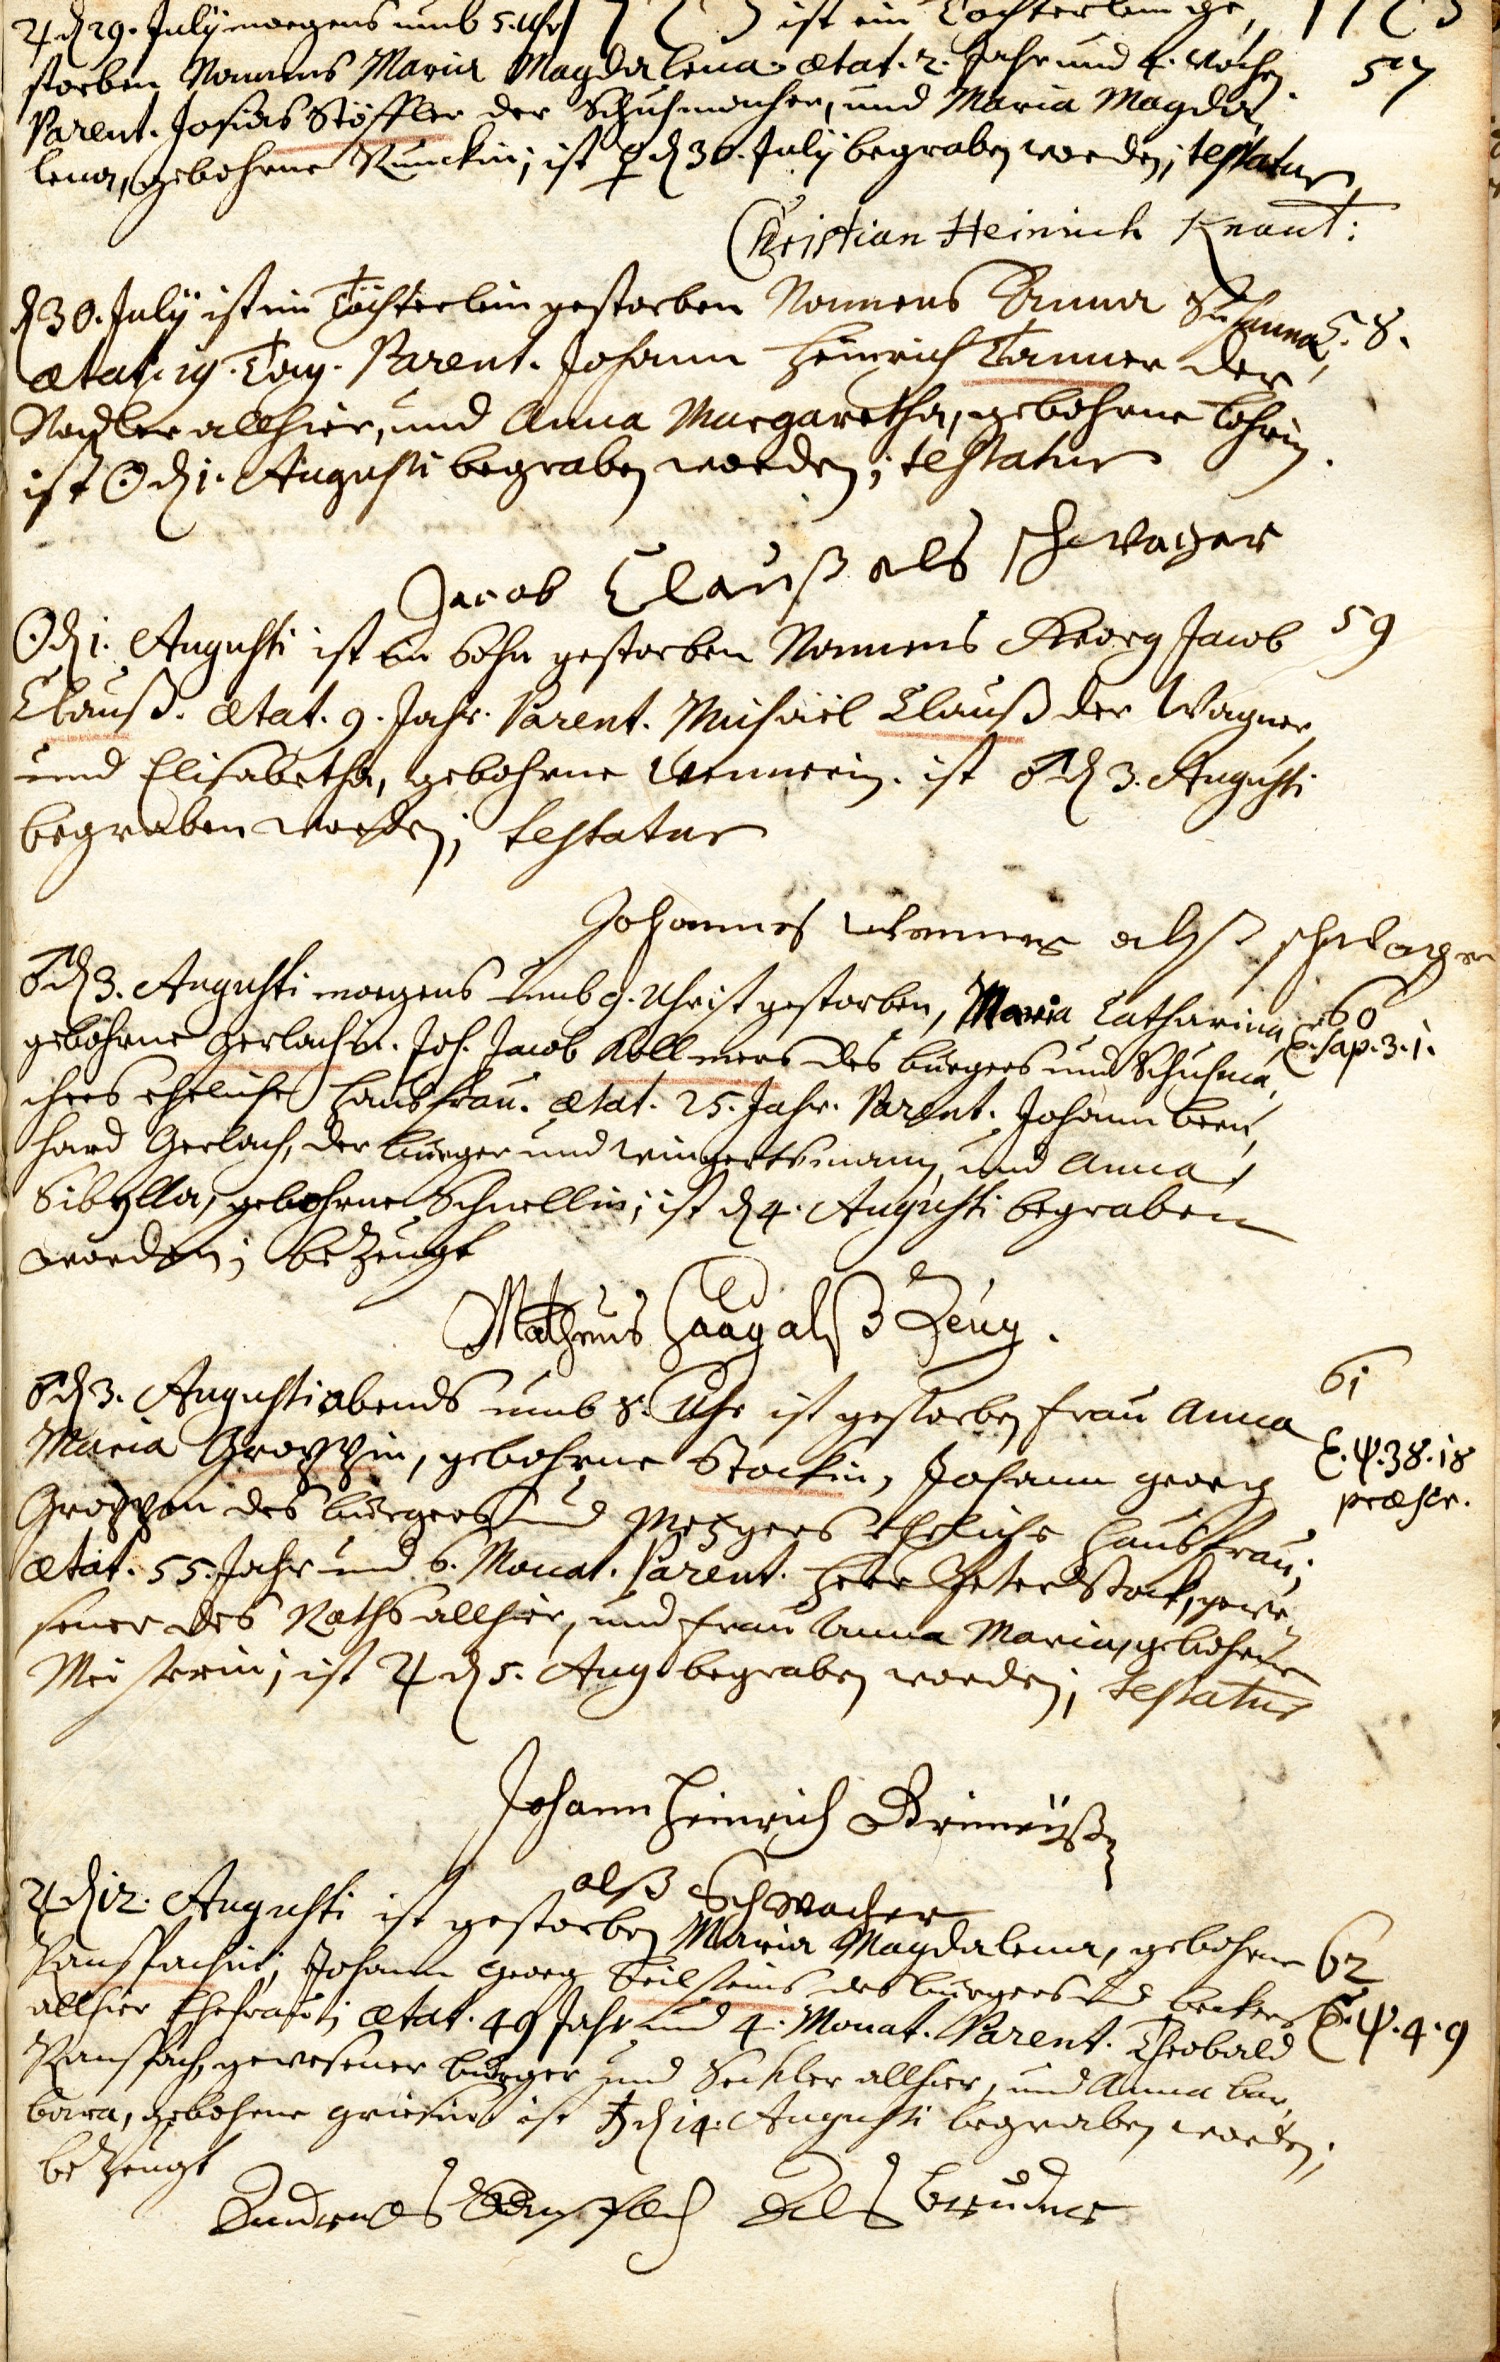 ♃ d. 29. Julÿ morgens umb 5. Uhr ist ein Töchterlein ge,
storben Nammens Maria Magdalena ætat. 2. Jahr und 4. Wochen. 57
Parent. Josias Stöffler der Schuhmacher, und Maria Magda,
lena, gebohrne Runckin; ist ♀ d. 30. Julÿ begraben worden; testatur
Christian Heinrich Knaut:
d. 30. Julÿ ist ein Töchterlein gestorben Nammens Anna Susanna, 58.
ætat. 19. Tag. Parent. Johann Heinrich Tanner der
Nadler allhier, und Anna Margaretha, gebohrne Lohrin
ist ☉ d. 1. Augusti begraben worden; testatur
Jacob Clauß als schwager
☉ d. 1. Augusti ist ein Sohn gestorben Nammens Georg Jacob 59
Clauß. ætat. 9. Jahr. Parent. Michäel Clauß der Wagner,
und Elisabetha, gebohrne ist ♂ d. 3. Augusti
begraben worden; testatur
Johannes alß schwager
♂ d. 3. Augusti morgens umb 9. Uhr ist gestorben, Maria Catharina, 60
gebohrne Gerlachin. Joh. Jacob Kollmers des burgers und Schuhma, E. Sap. 3. 1.
chers eheliche Haußfrau. ætat. 25. Jahr. Parent. Johann Bern,
hard Gerlach, der burger und wingertsmann, und Anna
Sibylla, gebohrne Schnellin; ist d. 4. Augusti begraben
worden; bezeugt
Matheus Haag alß Zeug.
♂ d. 3. Augusti abends umb 8. Uhr ist gestorben Frau Anna 61
Maria Groppin, gebohrne Stockin, Johann Georg E. ψ. 38. 18
Groppen des burgers und Metzgers eheliche Haußfrau; præster.
ætat. 55. Jahr und 6. Monat. Parent. Herr Peter Stock, gewe,
sener des Raths allhier, und Frau Anna Maria, gebohrne
Meisterin; ist ♃ d. 5. Aug. begraben worden; testatur
Johann Heinrich
alß Schwacher
♃ d. 12. Augusti ist gestorben Maria Magdalena, gebohrne 62
Ranspachin, Johann Georg Beilsteins des burgers und beckers E. ψ. 4. 9
allhier Ehefrau; ætat. 49 Jahr und 4. Monat. Parent. Theobald
Ranspach, gewesener burger und Seckler allhier, und Anna Bar,
bara, gebohrne Griesin ist ♄ d. 14. Augusti begraben worden;
bezeugt
Andreas als Bruder